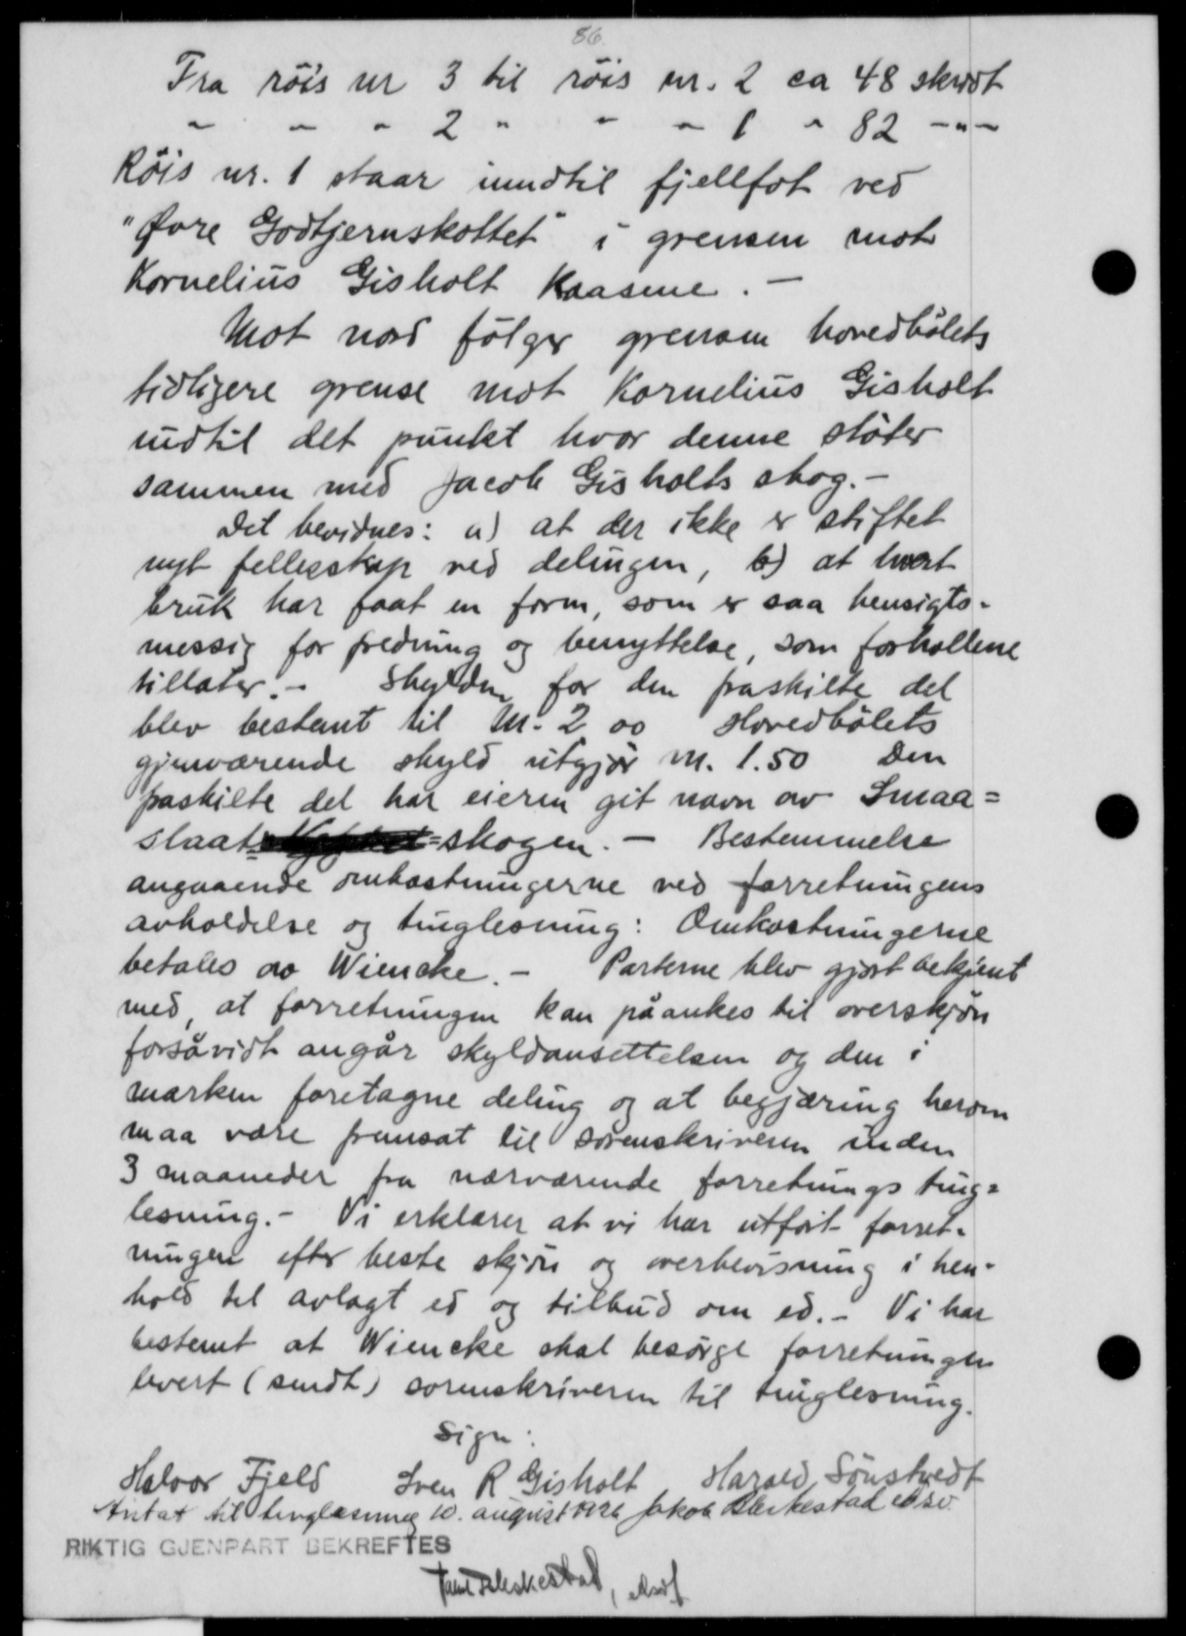 86.
Fra röis nr 3 til röis nr. 2 ca 48 skridt
" " " 2 " " " 1 " 82 -"-
Röis nr. 1 staar inndtil fjellfot ved
"Øvre Godtjernskottet" i grensen mot
Kornelius Gisholt Kaasene. -
Mot nord følger grensen hovedbölets
tidligere grense mot Kornelius Gisholt
indtil det punkt hvor denne stöter
sammen med Jacob Gisholts skog. -
Det bevidnes: a) at der ikke er stiftet
nyt fellesskap ved delingen, b) at hvert
bruk har faat en form, som er saa hensigts-
messig for fredning og benyttelse, som forhollene
tillater. - Skylden for den fraskilte del
blev bestemt til M. 2 oo Hovedbölets
gjenværende skyld utgjør M. 1.50 Den
fraskilte del har eieren git navn av Smaa=
slaat=skogen. - Bestemmelse
angaaende omkostningerne ved forretningens
avholdelse og tinglesning: Omkostningerne
betales av Wiencke. - Parterne blev gjort bekjent
med, at forretningen kan påankes til overskjön
forsåvidt angår skyldansettelsen og den i
marken foretagne deling og at begjæring herom
maa være fremsat til sorenskriveren inden
3 maaneder fra nærværende forretnings ting=
lesning. - Vi erklærer at vi har utfört forret-
ningen efter beste skjön og overbevisning i hen-
hold til avlagt ed og tilbud om ed. - Vi har
bestemt at Wiencke skal besörge forretningen
levert (sendt) sorenskriveren til tinglesning.
Sign:
Halvor Fjeld Sven R Gisholt Harald Sönstvedt
Antat til tinglæsning 10. august 1926 Jakob
RIKTIG GJENPART BEKREFTES